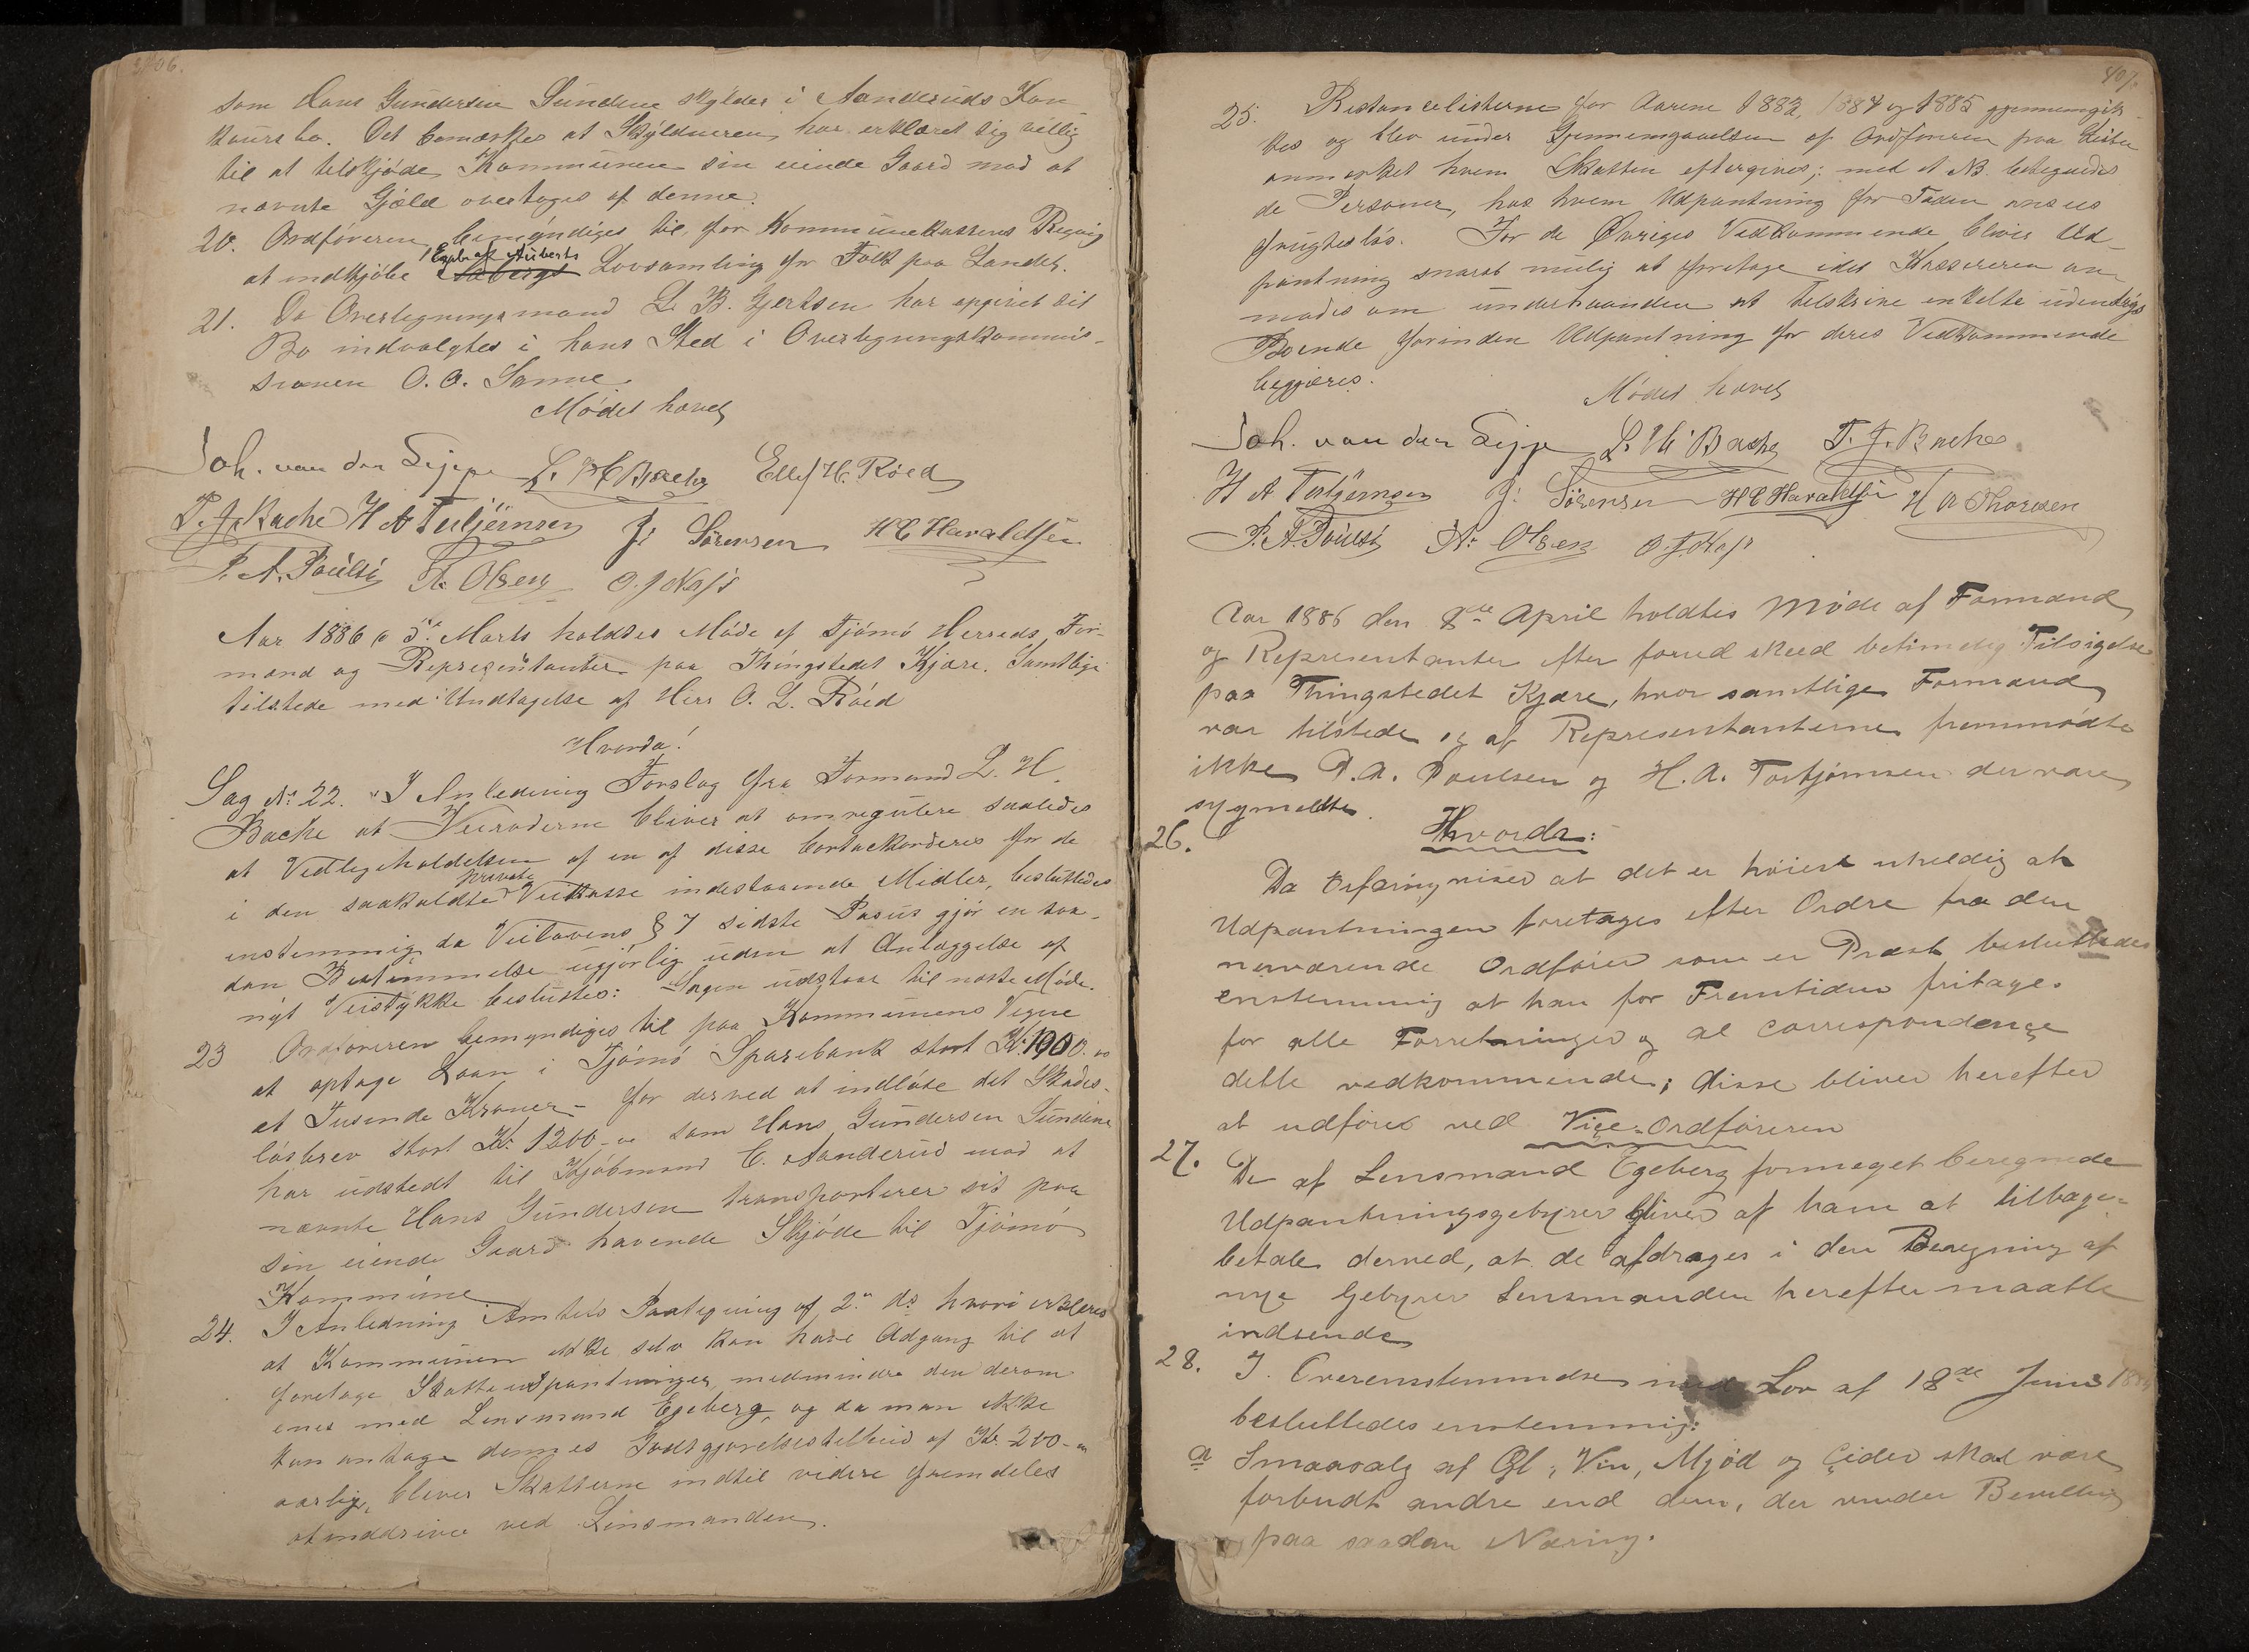 406.
som Hans Gundersen Sundene skylder i Aanderuds Kon
kursbo. Det bemærkes at Skyldneren har erklæret sig villig
til at tilskjøde Kommunen sin eiende Gaard mod at
nævnte Gjæld overtages af denne.
20. Ordføreren bemyndiges til, for Kommunekassens Regnig
1 Expl. af Auberts
at indkjøbe Lovsamling for Folk paa Landet.
21. Da Overlegningsmand L. B. Gjertsen har opgivet sit
Bo indvalgtes i hans Sted i Overlegningskommis-
sionen O. O. Sanne.
Mødet hævet
Joh. van der Lippe L. H. Bache Ellef H. Røed
T. J. Bache H A Torbjørnsen J. Sørensen H C Haraldsen
P. A. Poulse A. Olsen O. J.
Aar 1886 5te Marts holdtes Møde af Tjømø Herreds For-
mænd og Repræsentanter paa Thingstedet Kjære. Samtlige
tilstede med Undtagelse af Herr O. L. Røed
Hvorda!
Sag No 22. I Anledning Forslag fra Formand L. H.
Bache at Veiroderne bliver at omregulere saaledes
at Vedligeholdelsen af en af disse bortakkorderes for de
private
i den saakaldte Veikasse indestaaende Midler, besluttedes
enstemmig da Veilovens § 7 sidste Passus gjør en saa-
dan Bestemmelse ugjørlig uden at Anlæggelse af
nyt Veistykke besluttes: Sagen udstaar til næste Møde.
23 Ordføreren bemyndiges til paa Kommunens Vegne
at optage Laan i Tjømø Sparebank stort Kr. 1000.00
et Tusinde Kroner – for derved at indløse det Skades-
løsbrev stort Kr. 1200-00 som Hans Gundersen Sundene
har udstedt til Kjøbmand C. Aanderud mod at
nævnte Hans Gundersen transporterer sit paa
sin eiende Gaard havende Skjøde til Tjømø
Kommune
24. I Anledning Amtets Paategning af 2den ds hvori erklæres
at Kommunen ikke selv kan have Adgang til at
foretage Skatteudpantninger, medmindre den derom
enes med Lensmand Egeberg, og da man ikke
kan antage dennes Godtgjørelsestilbud af Kr. 200-00
aarlig, bliver Skatterne indtil videre fremdeles
at inddrive ved Lensmanden.
407.
25. Restancelisterne for Aarene 1883, 1884 og 1885 gjennemgik-
kes og blev under Gjennemgaaelsen af Ordføreren paa Listen
anmærket hvem Skatten eftergives; med et NB. betegnedes
de Personer, hos hvem Udpantning for Tiden ansees
frugtesløs. For de Øvriges Vedkommende bliver Ud-
pantning snarest mulig at foretage idet Kassereren an-
modes om underhaanden at tilskrive enkelte udenbygs
Boende forinden Udpantning for deres Vedkommende
begjæres.
Mødet hævet
Joh. van der Lippe L. H. Bache T. J. Bache
H A Torbjørnsen J. Sørensen H C Haraldsen H A Thoresen
P. A. Poulse A. Olsen O. J.
Aar 1886 den 8de April holdtes Møde af Formænd
og Representanter efter forud skeed betimelig Tilsigelse
paa Thingstedet Kjære, hvor samtlige Formænd
var tilstede og af Representanterne fremmødte
ikke P. A. Poulsen og H. A. Torbjørnsen der vare
sygmeldte.
Hvorda:
26.
Da Erfaring viser at det er høist uheldig at
Udpantningen foretages efter Ordre fra den
nuværende Ordfører som er Præst besluttedes
enstemmig at han for Fremtiden fritages
for alle Forretninger og al Correspondençe
dette vedkommende; disse bliver herefter
at udføre ved Viçe-Ordføreren
27. De af Lensmand Egeberg formeget beregnede
Udpantningsgebyrer bliver af ham at tilbage-
betale derved, at de afdrages i den Beregning af
nye Gebyrer Lensmanden herefter maatte
indsende
28. I Overensstemmelse med Lov af 18de Juni 1884
besluttedes enstemmig:
a Smaasalg af Øl, Vin, Mjød og Çider skal være
forbudt andre end dem, der vinder Bevilling
paa saadan Næring.